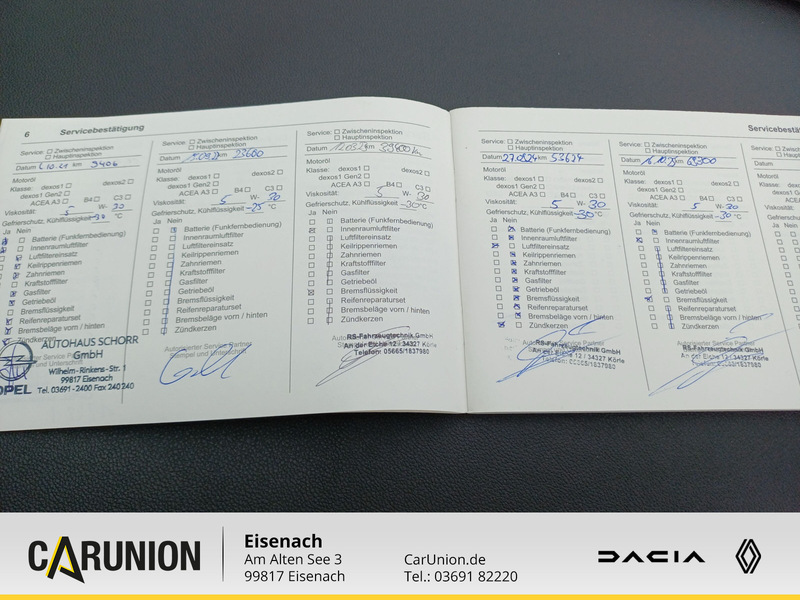 6 Servicebestätigung
Service: Zwischeninspektion
Hauptinspektion
Datum 10.21 km 9406
Motoröl
Klasse: dexos1 dexos2
dexos1 Gen2
ACEA A3 B4 C3
Viskosität: 5 W- 30
Gefrierschutz, Kühlflüssigkeit -30 °C
Ja Nein
Batterie (Funkfernbedienung)
Innenraumluftfilter
Luftfiltereinsatz
Keilrippenriemen
Zahnriemen
Kraftstofffilter
Gasfilter
Getriebeöl
Bremsflüssigkeit
Reifenreparaturset
Bremsbeläge vorn / hinten
Zündkerzen
AUTOHAUS SCHORR
GmbH
Wilhelm-Rinkens-Str. 1
99817 Eisenach
Tel. 03691 - 2400 Fax 240 240
OPEL
Service: Zwischeninspektion
Hauptinspektion
Datum km 23600
Motoröl
Klasse: dexos1 dexos2
dexos1 Gen2
ACEA A3 B4 C3
Viskosität: 5 W- 30
Gefrierschutz, Kühlflüssigkeit -25 °C
Ja Nein
Batterie (Funkfernbedienung)
Innenraumluftfilter
Luftfiltereinsatz
Keilrippenriemen
Zahnriemen
Kraftstofffilter
Gasfilter
Getriebeöl
Bremsflüssigkeit
Reifenreparaturset
Bremsbeläge vorn / hinten
Zündkerzen
Autorisierter Service Partner
Stempel und Unterschrift
Service: Zwischeninspektion
Hauptinspektion
Datum
Motoröl
Klasse: dexos1 dexos2
dexos1 Gen2
ACEA A3 B4 C3
Viskosität: 5 W- 30
Gefrierschutz, Kühlflüssigkeit -30 °C
Ja Nein
Batterie (Funkfernbedienung)
Innenraumluftfilter
Luftfiltereinsatz
Keilrippenriemen
Zahnriemen
Kraftstofffilter
Gasfilter
Getriebeöl
Bremsflüssigkeit
Reifenreparaturset
Bremsbeläge vorn / hinten
Zündkerzen
RS-Fahrzeugtechnik GmbH
An der Eiche 12 / 34327 Körle
Telefon: 05665/1837980
Servicebestät
Service: Zwischeninspektion
Hauptinspektion
Datum 27.0924 km 53624
Motoröl
Klasse: dexos1 dexos2
dexos1 Gen2
ACEA A3 B4 C3
Viskosität: 5 W- 30
Gefrierschutz, Kühlflüssigkeit -30 °C
Ja Nein
Batterie (Funkfernbedienung)
Innenraumluftfilter
Luftfiltereinsatz
Keilrippenriemen
Zahnriemen
Kraftstofffilter
Gasfilter
Getriebeöl
Bremsflüssigkeit
Reifenreparaturset
Bremsbeläge vorn / hinten
Zündkerzen
RS-Fahrzeugtechnik GmbH
An der Eiche 12 / 34327 Körle
Service: Zwischeninspektion
Hauptinspektion
Datum km
Motoröl
Klasse: dexos1 dexos2
dexos1 Gen2
ACEA A3 B4 C3
Viskosität: 5 W- 30
Gefrierschutz, Kühlflüssigkeit -30 °C
Ja Nein
Batterie (Funkfernbedienung)
Innenraumluftfilter
Luftfiltereinsatz
Keilrippenriemen
Zahnriemen
Kraftstofffilter
Gasfilter
Getriebeöl
Bremsflüssigkeit
Reifenreparaturset
Bremsbeläge vorn / hinten
Zündkerzen
RS-Fahrzeugtechnik GmbH
An der Eiche 12 / 34327 Körle
Service:
Datum
Motoröl
Klasse: dexos1
dexos1
ACEA
Viskosität:
Gefrierschutz, Kühl
Ja Nein
Batterie
Innenraum
Luftfilter
Keilrippen
Zahnriemen
Kraftstoff
Gasfilter
Getriebeöl
CARUNION
Eisenach
Am Alten See 3
99817 Eisenach
CarUnion.de
Tel.: 03691 82220
DACIA